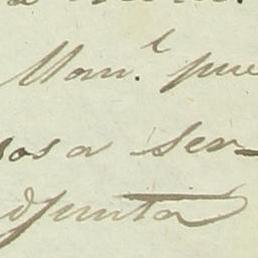 Man.l pue
osa ser-
djunta